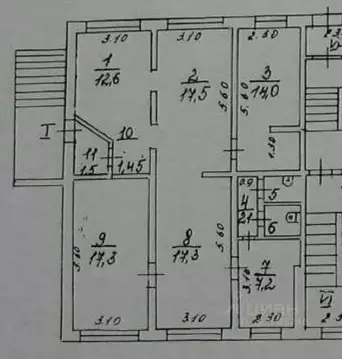 3.10 3.10 2.30
1
12,6
2
17,5
3
14,0
5.60
5.60
I
10
1,45
11
1.5
1.30
0.9
4
2.1
5
6
9
17,3
5.60
8
17,3
5.60
7
7,2
3.10
3.10 3.10 2.30
VI
циан